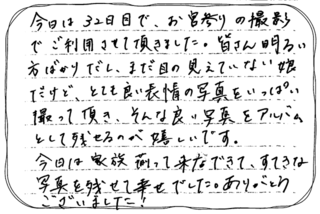 今日は32日目で、お宮参りの撮影
でご利用させて頂きました。皆さん明るい
方ばかりだし、まだ目の見えていない娘
だけど、とても良い表情の写真をいっぱい
撮って頂き、そんな良い写真をアルバム
として残せるのが嬉しいです。
今日は家族揃って来店できて、すてきな
写真を残せて幸せでした。ありがとう
ございました!